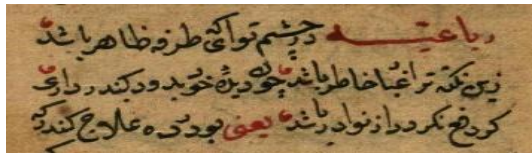 رباعیه در چشم تو اکتی طرفه ظاهر باشد
زین نکته ترا غبا خاطر باشد چون دیدۀ خود بدود کند داری
کر دفع نکردد از نوادر باشد یعنی بود که علاج کند که